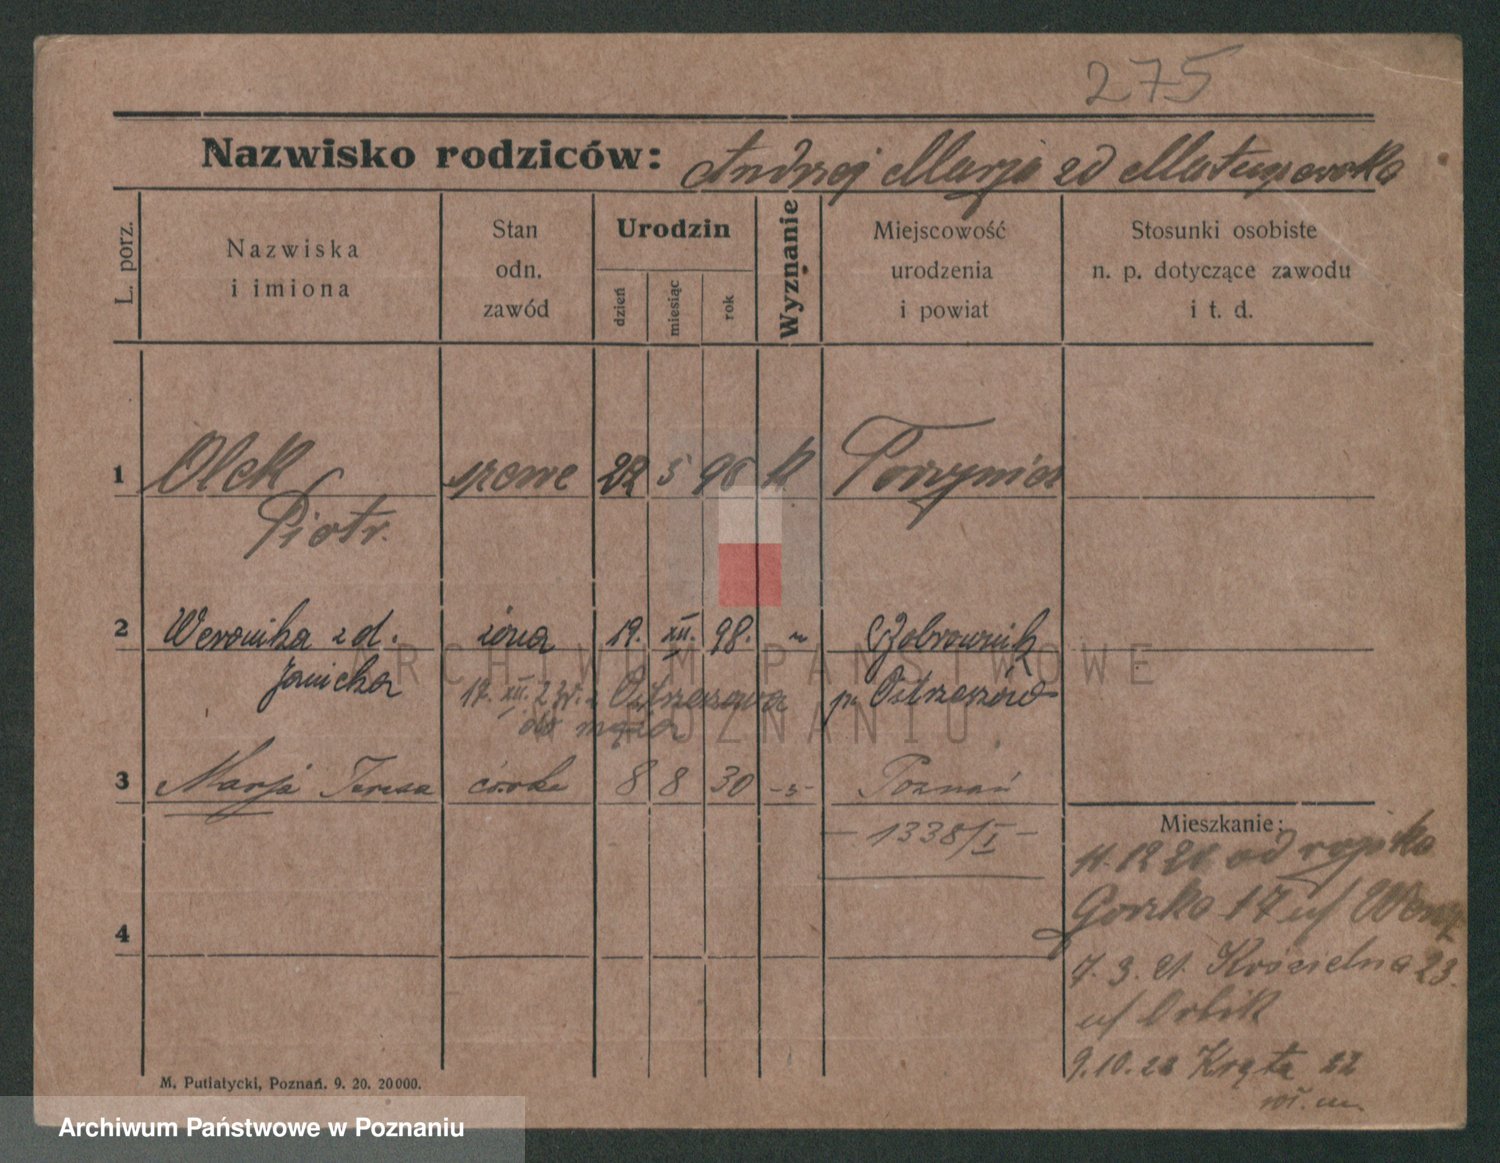 275
Nazwisko rodziców: Andrzej Marja zd
L. porz.
Nazwiska
i imiona
Stan
odn.
zawód
Urodzin
dzień
miesiąc
rok
Wyznanie
Miejscowość
urodzenia
i powiat
Stosunki osobiste
n. p. dotyczące zawodu
i t. d.
1 Olek szewc 22 5 98 k
Piotr.
2 Weronika z d. żona 19. XII. 98. Bobrownik
Janicka
17. XII. z Ostrzeszowa
do męża
p. Ostrzeszów
3 Marja Teresa córka 8 8 30 Poznań
- 1338/I -
Mieszkanie:
11. 12 20 od
4
17 u/
7. 3. 21. Kościelna 23.
u/ Orlik
9. 10. 22 Kręta 22
M. Putiatycki, Poznań. 9. 20. 20000.
ARCHIWUM PAŃSTWOWE
W POZNANIU
Archiwum Państwowe w Poznaniu